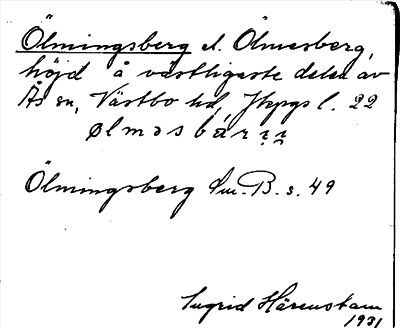 Ölmingsberg el. Ölmesberg,
höjd å västligaste delen av
Ås sn, Västbo hd, Jkpgs l. 22
ølməsbár
Ölmingsberg Sm. B. s. 49
Ingrid Härenstam
1931